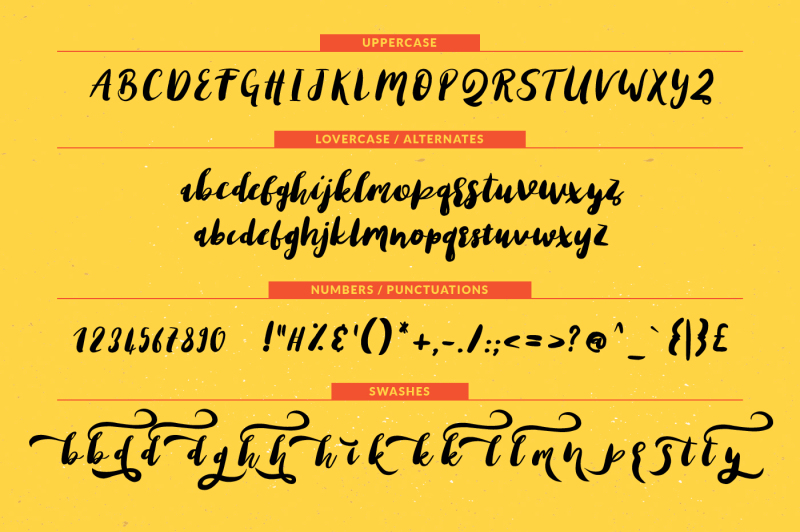 UPPERCASE
ABCDEFGHIJKLMOPQRSTUVWXYZ
LOVERCASE / ALTERNATES
abcdefghijklmopqrstuvwxyz
abcdefghjklmnopqrstuvwxyz
NUMBERS / PUNCTUATIONS
1234567890 !"#%&'()*+,-./:;<=>?@^_`{|}£
SWASHES
bbdddghhhikkklllmnpqsttty